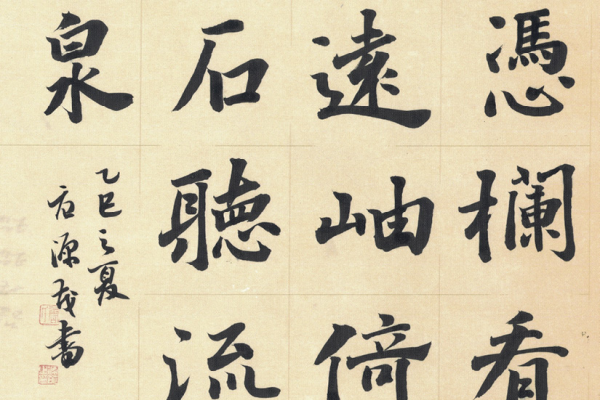 憑欄看
遠岫倚
石聽流
泉
乙巳之夏
源 書